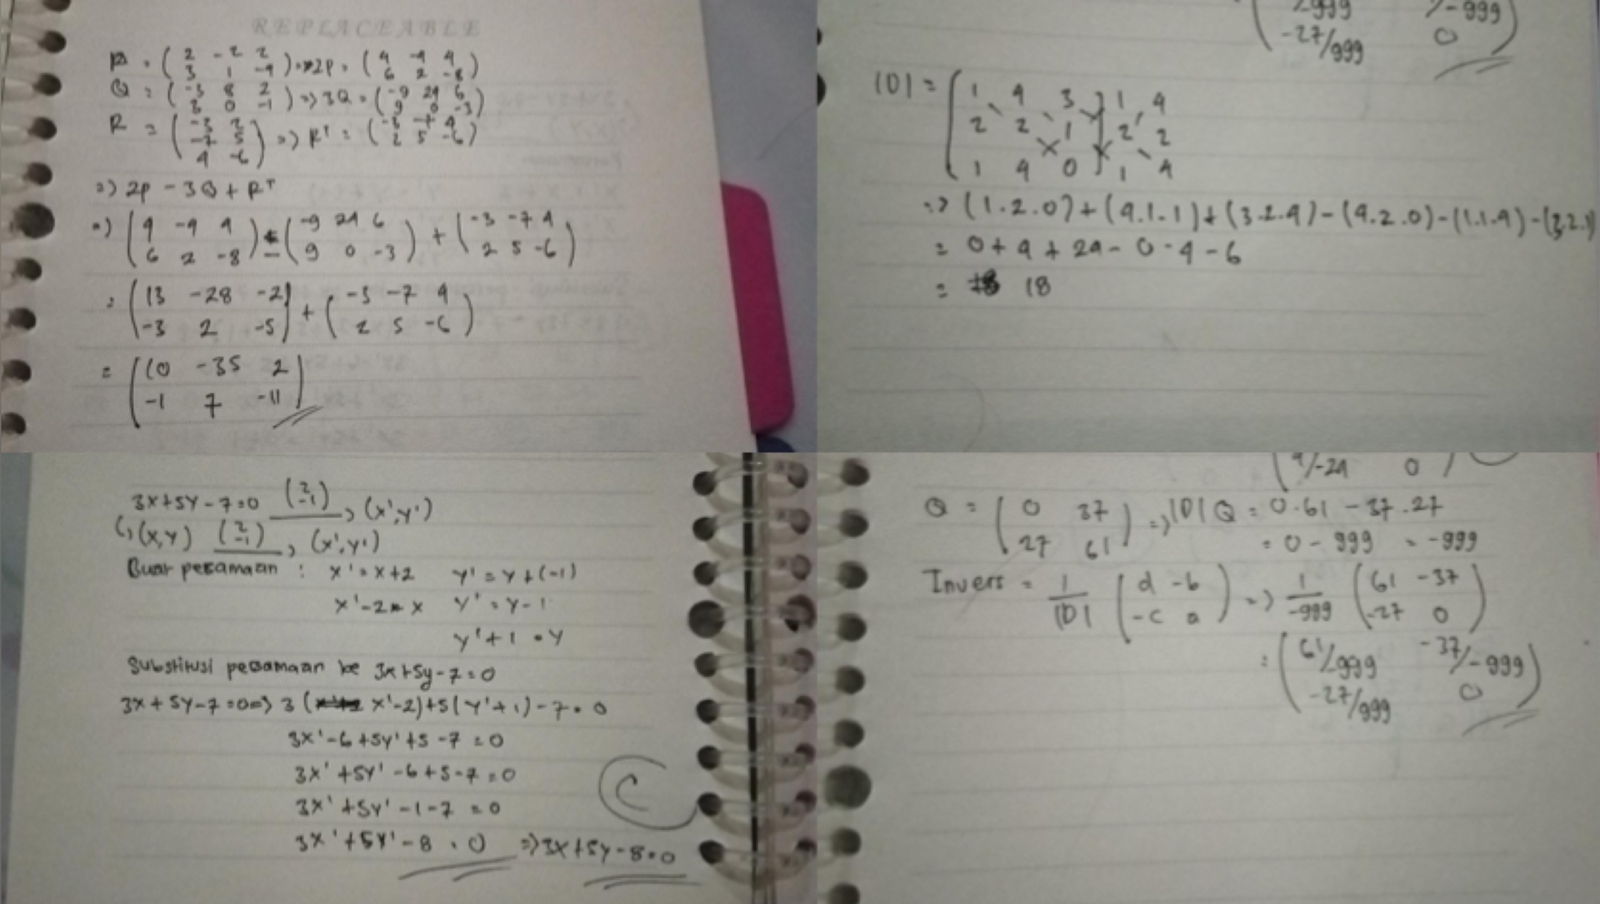 REPLACEABLE
P = ( 2 -2 2 ) => 2P = ( 4 -4 4 )
3 1 -4 6 2 -8
Q = ( -3 8 2 ) => 3Q = ( -9 24 6 )
3 0 -1 9 0 -3
R = ( -3 2 ) => R^T = ( -3 -7 4 )
-7 5 2 5 -6
4 -6
=> 2P - 3Q + R^T
=> ( 4 -4 4 ) - ( -9 24 6 ) + ( -3 -7 4 )
6 2 -8 9 0 -3 2 5 -6
= ( 13 -28 -2 ) + ( -3 -7 4 )
-3 2 -5 2 5 -6
= ( 10 -35 2 )
-1 7 -11
/-999
-27/999 0
|D| = [ 1 4 3 ] 1 4
2 2 1 2 2
1 4 0 1 4
=> (1.2.0) + (4.1.1) + (3.2.4) - (4.2.0) - (1.1.4) - (3.2.1)
= 0 + 4 + 24 - 0 - 4 - 6
= 18
3x+5y-7=0 (2 -1) → (x',y')
(x,y) (2 -1) → (x',y')
Buat persamaan : x' = x+2 y' = y+(-1)
x'-2 = x y' = y-1
y'+1 = y
Substitusi persamaan ke 3x+5y-7=0
3x+5y-7=0 => 3(x'-2)+5(y'+1)-7=0
3x'-6+5y'+5-7=0
3x'+5y'-6+5-7=0
3x'+5y'-1-7=0
3x'+5y'-8=0 => 3x+5y-8=0
C
/-24 0
Q = ( 0 37 ) => |D| Q = 0.61 - 37.27
27 61 = 0 - 999 = -999
Invers = 1/|D| ( d -b ) => 1/-999 ( 61 -37 )
-c a -27 0
= ( 61/-999 -37/-999 )
-27/999 0